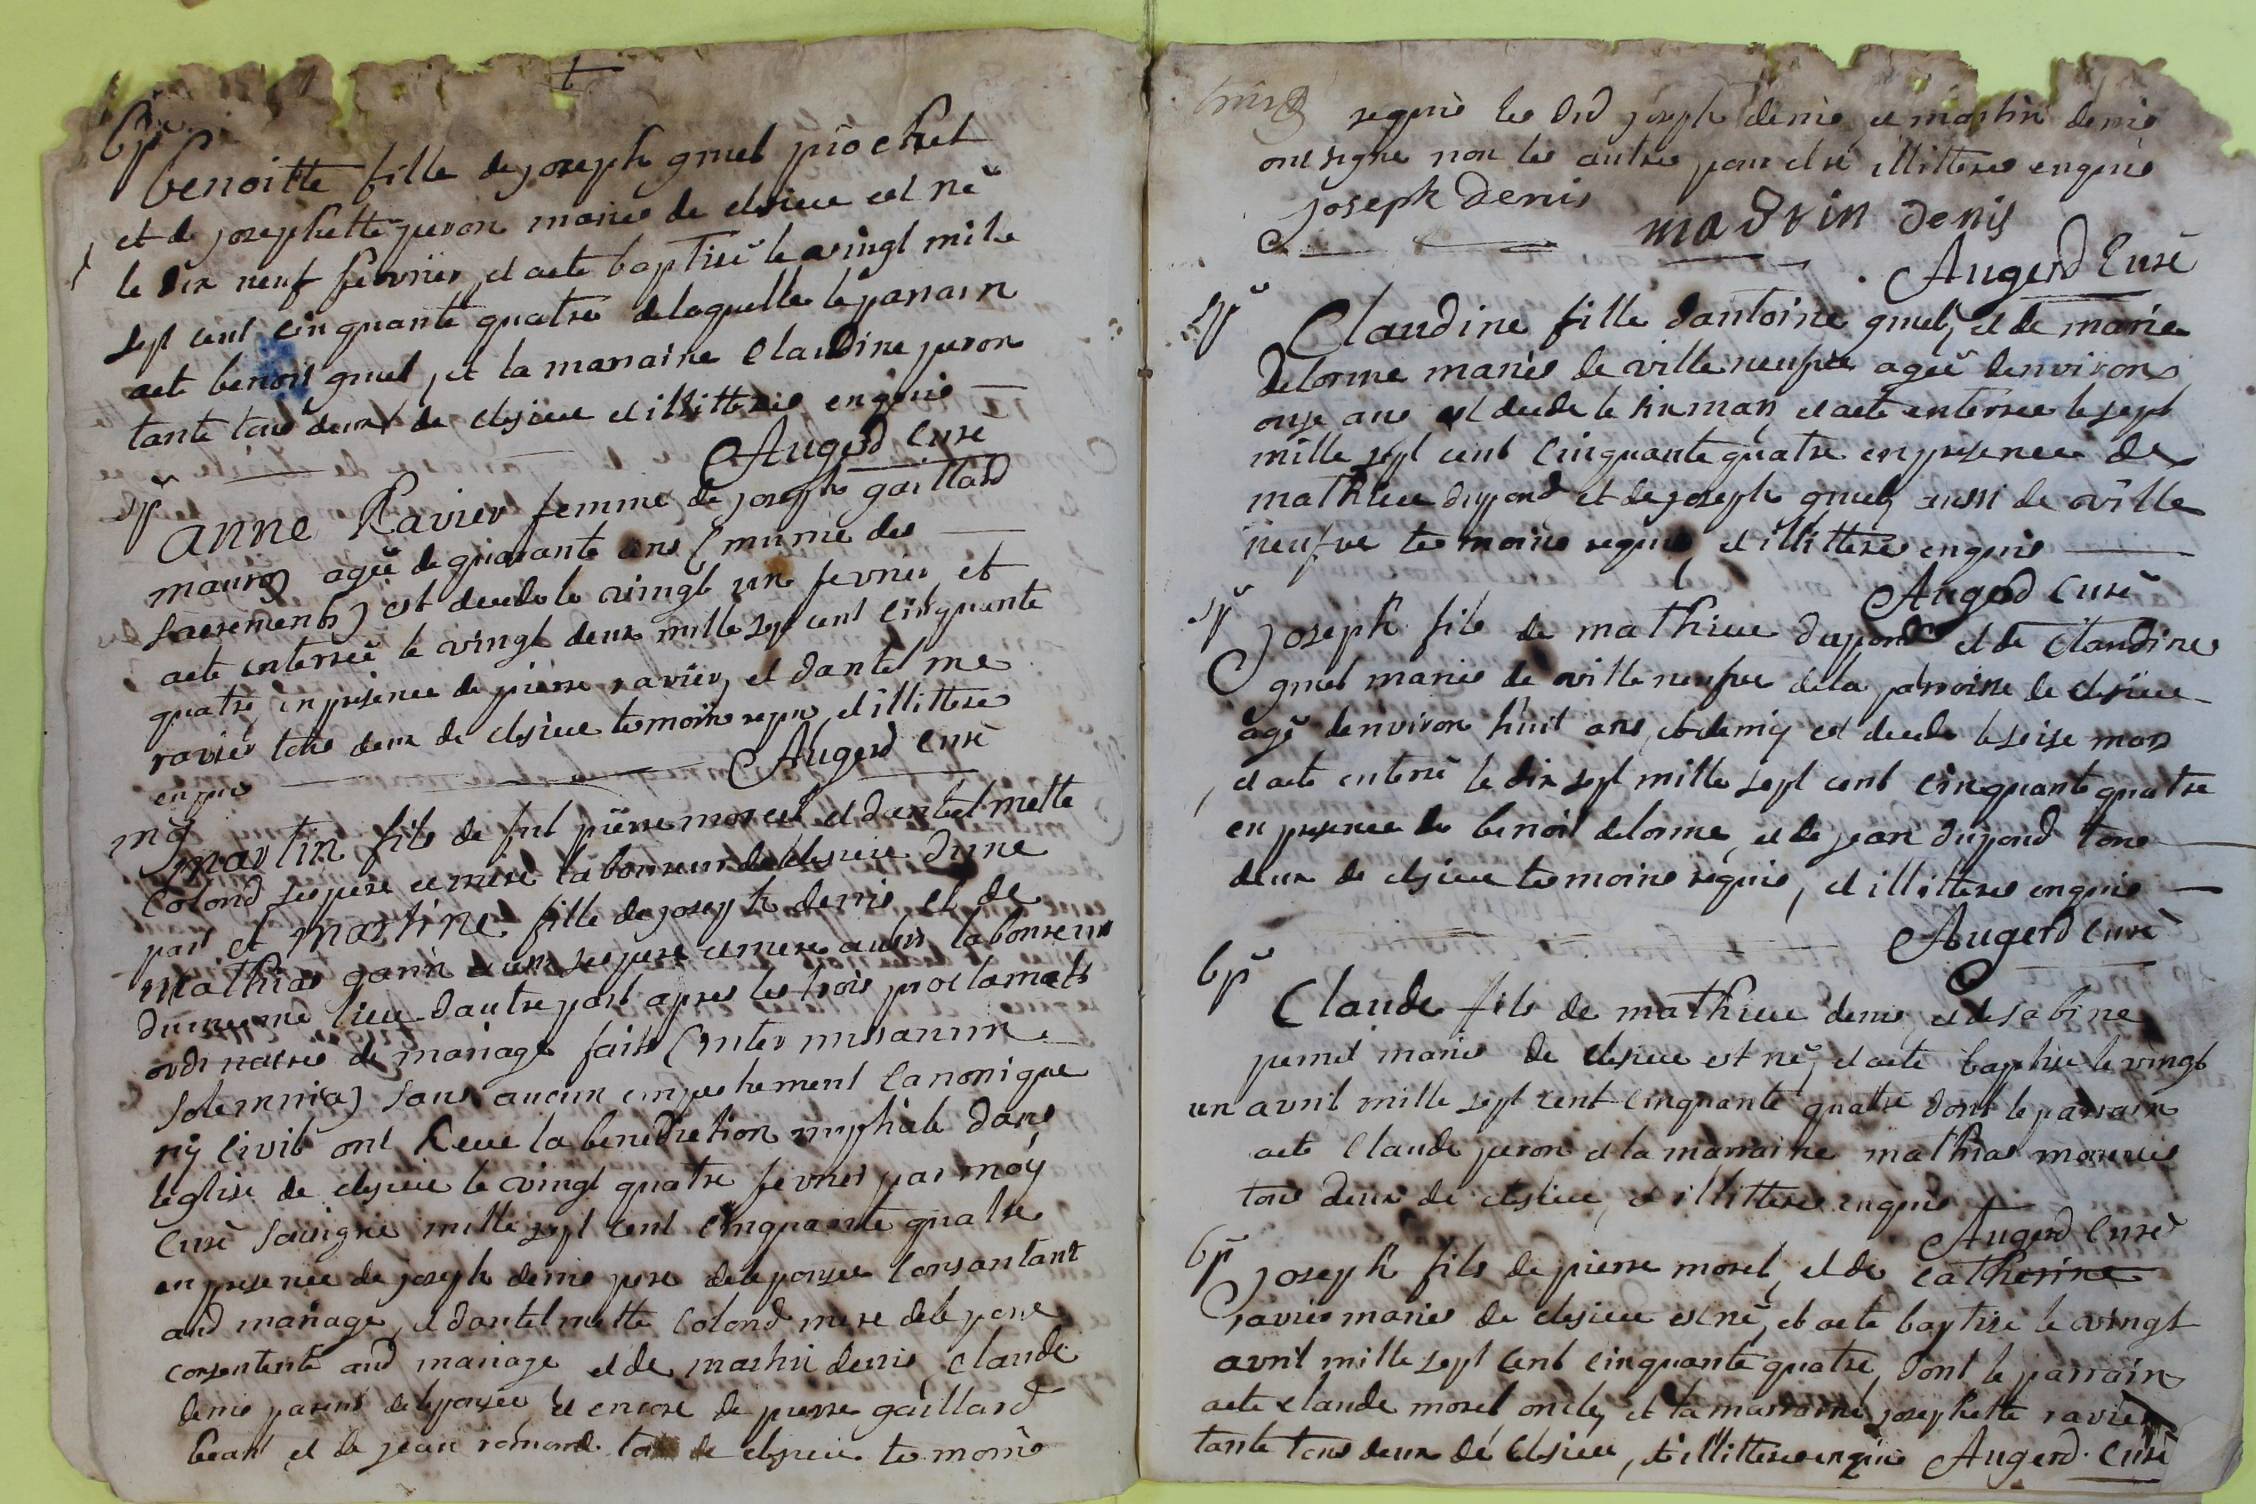 bp.
benoitte fille de joseph gruel piochet
et de josephette juron mariés de clesieu est né
le dix neuf fevrier, et aete baptisé le vingt mile
sept cent cinquante quatre de laquelle le parrain
aete benoit gruel, et la marraine Claudine juron
tante tous deux de clesieu et illitteres enquis
Augerd curé
sp
anne Ravier femme de joseph gaillard
agée de quarante ans (munie des
sacrements) est decede le vingt un fevrier et
aete enterrée le vingt deux mille sept cent cinquante
quatre, en presence de pierre ravier, et dantelme
ravier tous deux de clesieu temoins requis, et illittere
enquis Augerd curé
mg
martin fils de fut pierre morel et dantelmette
Colond ses pere et mere laboureur de clesieu dune
part et martine fille de joseph denis et de
mathias garin ses pere et mere aussi laboureurs
du mesme lieu dautre part apres les trois proclamats
ordinaires de mariage faits (inter missarum
solemnia) sans aucun empechement canonique
ny civil ont receu la benediction nuptiale dans
leglise de clesieu le vingt quatre fevrier par moÿ
curé sousigné mille sept cent cinquante quatre
en presence de joseph denis pere delepouse consantant
aud mariage, et dantelmette Colond mere delepoux
consentente aud mariage et de martin denis, claude
denis parens delepousée et encore de pierre gaillard
beau et de jean romand tous de clesieu temoins
requis les dud joseph denis, et martin denis
ont signe non les autres pour etre illitteres enquis
joseph Denis
martin denis
Augerd Curé
sp
Claudine fille dantoine gruel, et de marie
delorme mariés de villeneufve agée denviron
onze ans est decede le six mars, et aete enterree le sept
mille sept cent cinquante quatre en presence de
mathieu dupond et de joseph gruel, aussi de ville
neufve temoins requis, et illitteres enquis
Augerd Curé
sp
joseph fils de mathieu dupond et de Claudine
gruel mariés de villeneufve dela parroisse de clesieu
agé denviron huit ans, et demy est decede le seize mars
et aete enterré le dix sept mille sept cent cinquante quatre
en presence de benoit delorme, et de jean dupond tous
deux de clesieu temoins requis, et illitteres enquis
Augerd curé
bp
Claude fils de mathieu denis et de sabine
pernet mariés de clesieu est né, et aete baptisé le vingt
un avril mille sept cent cinquante quatre dont le parrain
aete claude juron et la marraine mathias
tous deux de clesieu, et illitteres enquis
Augerd Curé
bp
joseph fils de pierre morel, et de catherine
ravier mariés de clesieu est né, et aete baptisé le vingt
avril mille sept cent cinquante quatre, dont le parrain
aete claude morel oncle, et la marraine josephette ravier
tante tous deux de clesieu, et illitteres enquis Augerd Curé